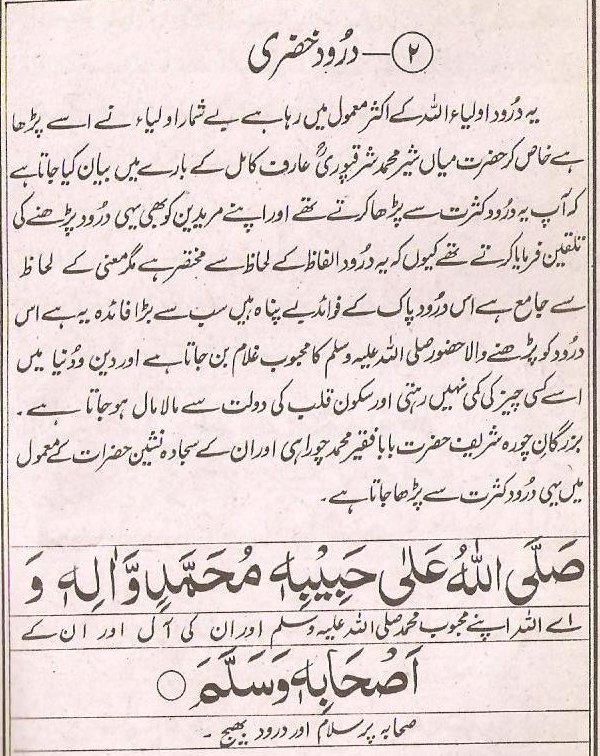 ۲ — درُود خضری
یہ درُود اولیاء اللہ کے اکثر معمول میں رہا ہے بے شمار اولیاء نے اسے پڑھا
ہے خاص کر حضرت میاں شیر محمد شرقپوریؒ عارف کامل کے بارے میں بیان کیا جاتا ہے
کہ آپ یہ درُود کثرت سے پڑھا کرتے تھے اور اپنے مریدین کو بھی یہی درود پڑھنے کی
تلقین فرمایا کرتے تھے کیوں کہ یہ درُود الفاظ کے لحاظ سے مختصر ہے مگر معنی کے لحاظ
سے جامع ہے اس درُود پاک کے فوائد بے پناہ ہیں سب سے بڑا فائدہ یہ ہے اس
درُود کو پڑھنے والا حضور صلی اللہ علیہ وسلم کا محبوب غلام بن جاتا ہے اور دین و دُنیا میں
اسے کسی چیز کی کمی نہیں رہتی اور سکون قلب کی دولت سے مالا مال ہو جاتا ہے۔
بزرگان چورہ شریف حضرت بابا فقیر محمد چوراہی اور ان کے سجادہ نشین حضرات کے معمول
میں یہی درُود کثرت سے پڑھا جاتا ہے۔
صَلَّى اللّٰهُ عَلٰى حَبِيْبِهٖ مُحَمَّدٍ وَّاٰلِهٖ وَ
اے اللہ اپنے محبوب محمد صلی اللہ علیہ وسلم اور ان کی آل اور ان کے
اَصْحَابِهٖ وَسَلَّمَ ○
صحابہ پر سلام اور درود بھیج۔